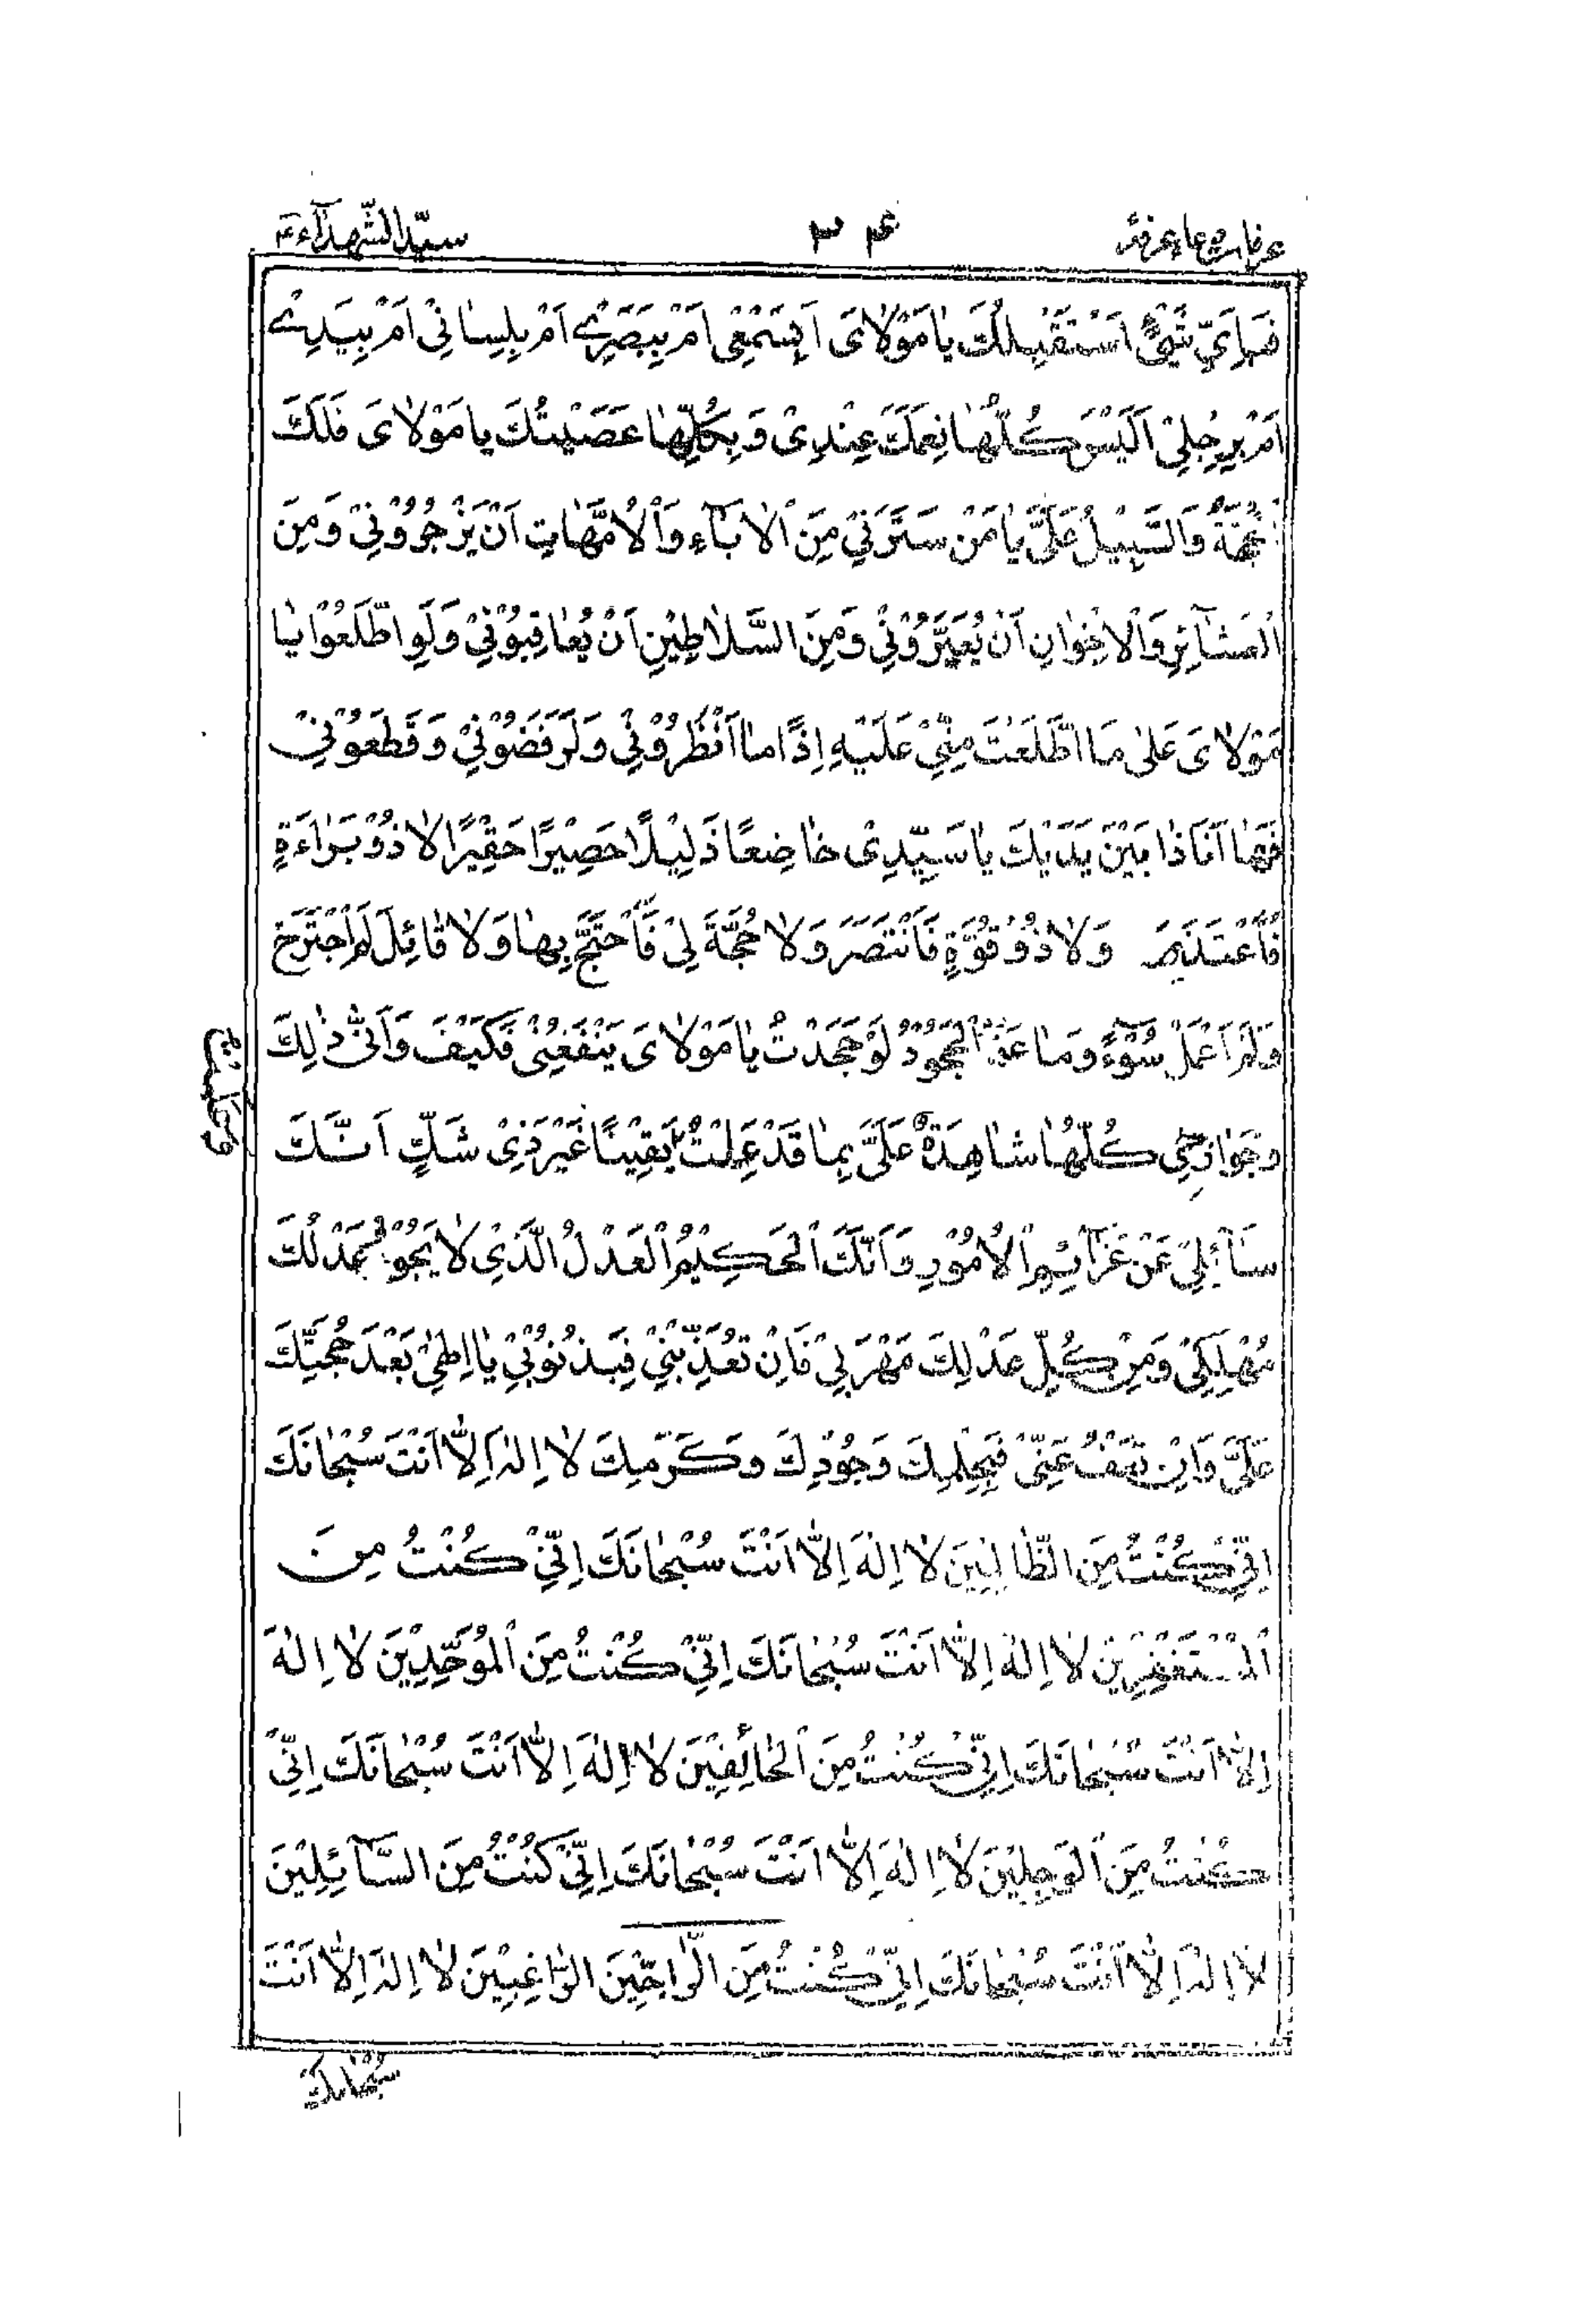 عرفات دعاء عرفہ ۳۴ سیّد الشّهدآء ع
فَبِاَیِّ شَیْءٍ اَسْتَقْبِلُكَ یٰا مَوْلٰایَ اَبِسَمْعِی اَمْ بِبَصَرِیْ اَمْ بِلِسٰانِیْ اَمْ بِیَدِیْ
اَمْ بِرِجْلِیْ اَلَیْسَ كُلُّهٰا نِعَمَكَ عِنْدِیْ وَ بِكُلِّهٰا عَصَیْتُكَ یا مَوْلٰایَ فَلَكَ
الْحُجَّةُ وَالسَّبِیْلُ عَلَیَّ یٰا مَنْ سَتَرَنِیْ مِنَ الْاٰبَآءِ وَالْاُمَّهٰاتِ اَنْ یَزْجُرُوْنِیْ وَمِنَ
الْعَشٰآئِرِ وَالْاِخْوٰانِ اَنْ یُعَیِّرُوْنِیْ وَمِنَ السَّلٰاطِیْنِ اَنْ یُعٰاقِبُوْنِیْ وَلَوِ اطَّلَعُوْا یٰا
مَوْلٰایَ عَلٰی مَا اطَّلَعْتَ مِنِّیْ عَلَیْهِ اِذًا مٰا اَنْظَرُوْنِیْ وَلَرَفَضُوْنِیْ وَ قَطَعُوْنِیْ
فَهٰا اَنَا ذٰا بَیْنَ یَدَیْكَ یٰا سَیِّدِیْ خٰاضِعًا ذَلِیْلًا حَصِیْرًا حَقِیْرًا لٰا ذُوْ بَرٰاءَةٍ
فَاَعْتَذِرَ وَلٰا ذُوْ قُوَّةٍ فَاَنْتَصِرَ وَلٰا حُجَّةَ لِیْ فَاَحْتَجَّ بِهٰا وَلٰا قٰائِلٌ لَمْ اَجْتَرِحْ
وَلَمْ اَعْمَلْ سُوْٓءً وَمٰا عَسَی الْجُحُوْدُ لَوْ جَحَدْتُ یٰا مَوْلٰایَ یَنْفَعُنِیْ فَكَیْفَ وَاَنّٰی ذٰلِكَ
وَجَوٰارِحِیْ كُلُّهٰا شٰاهِدَةٌ عَلَیَّ بِمٰا قَدْ عَمِلْتُ یَقِیْنًا غَیْرَ ذِیْ شَكٍّ اَنَّكَ
سَآئِلِیْ عَنْ عَزٰآئِمِ الْاُمُوْرِ وَاَنَّكَ الْحَكِیْمُ الْعَدْلُ الَّذِیْ لٰا یَجُوْرُ وَعَدْلُكَ
مُهْلِكِیْ وَمِنْ كُلِّ عَدْلِكَ مَهْرَبِیْ فَاِنْ تُعَذِّبْنِیْ فَبِذُنُوْبِیْ یٰا اِلٰهِیْ بَعْدَ حُجَّتِكَ
عَلَیَّ وَاِنْ تَعْفُ عَنِّیْ فَبِحِلْمِكَ وَجُوْدِكَ وَكَرَمِكَ لٰا اِلٰهَ اِلّٰا اَنْتَ سُبْحٰانَكَ
اِنِّیْ كُنْتُ مِنَ الظّٰالِمِیْنَ لٰا اِلٰهَ اِلّٰا اَنْتَ سُبْحٰانَكَ اِنِّیْ كُنْتُ مِنَ
الْمُسْتَغْفِرِیْنَ لٰا اِلٰهَ اِلّٰا اَنْتَ سُبْحٰانَكَ اِنِّیْ كُنْتُ مِنَ الْمُوَحِّدِیْنَ لٰا اِلٰهَ
اِلّٰا اَنْتَ سُبْحٰانَكَ اِنِّیْ كُنْتُ مِنَ الْخٰائِفِیْنَ لٰا اِلٰهَ اِلّٰا اَنْتَ سُبْحٰانَكَ اِنِّیْ
كُنْتُ مِنَ الْوَجِلِیْنَ لٰا اِلٰهَ اِلّٰا اَنْتَ سُبْحٰانَكَ اِنِّیْ كُنْتُ مِنَ السّٰآئِلِیْنَ
لٰا اِلٰهَ اِلّٰا اَنْتَ سُبْحٰانَكَ اِنِّیْ كُنْتُ مِنَ الرّٰاجِیْنَ الرّٰاغِبِیْنَ لٰا اِلٰهَ اِلّٰا اَنْتَ
سُبْحٰانَكَ